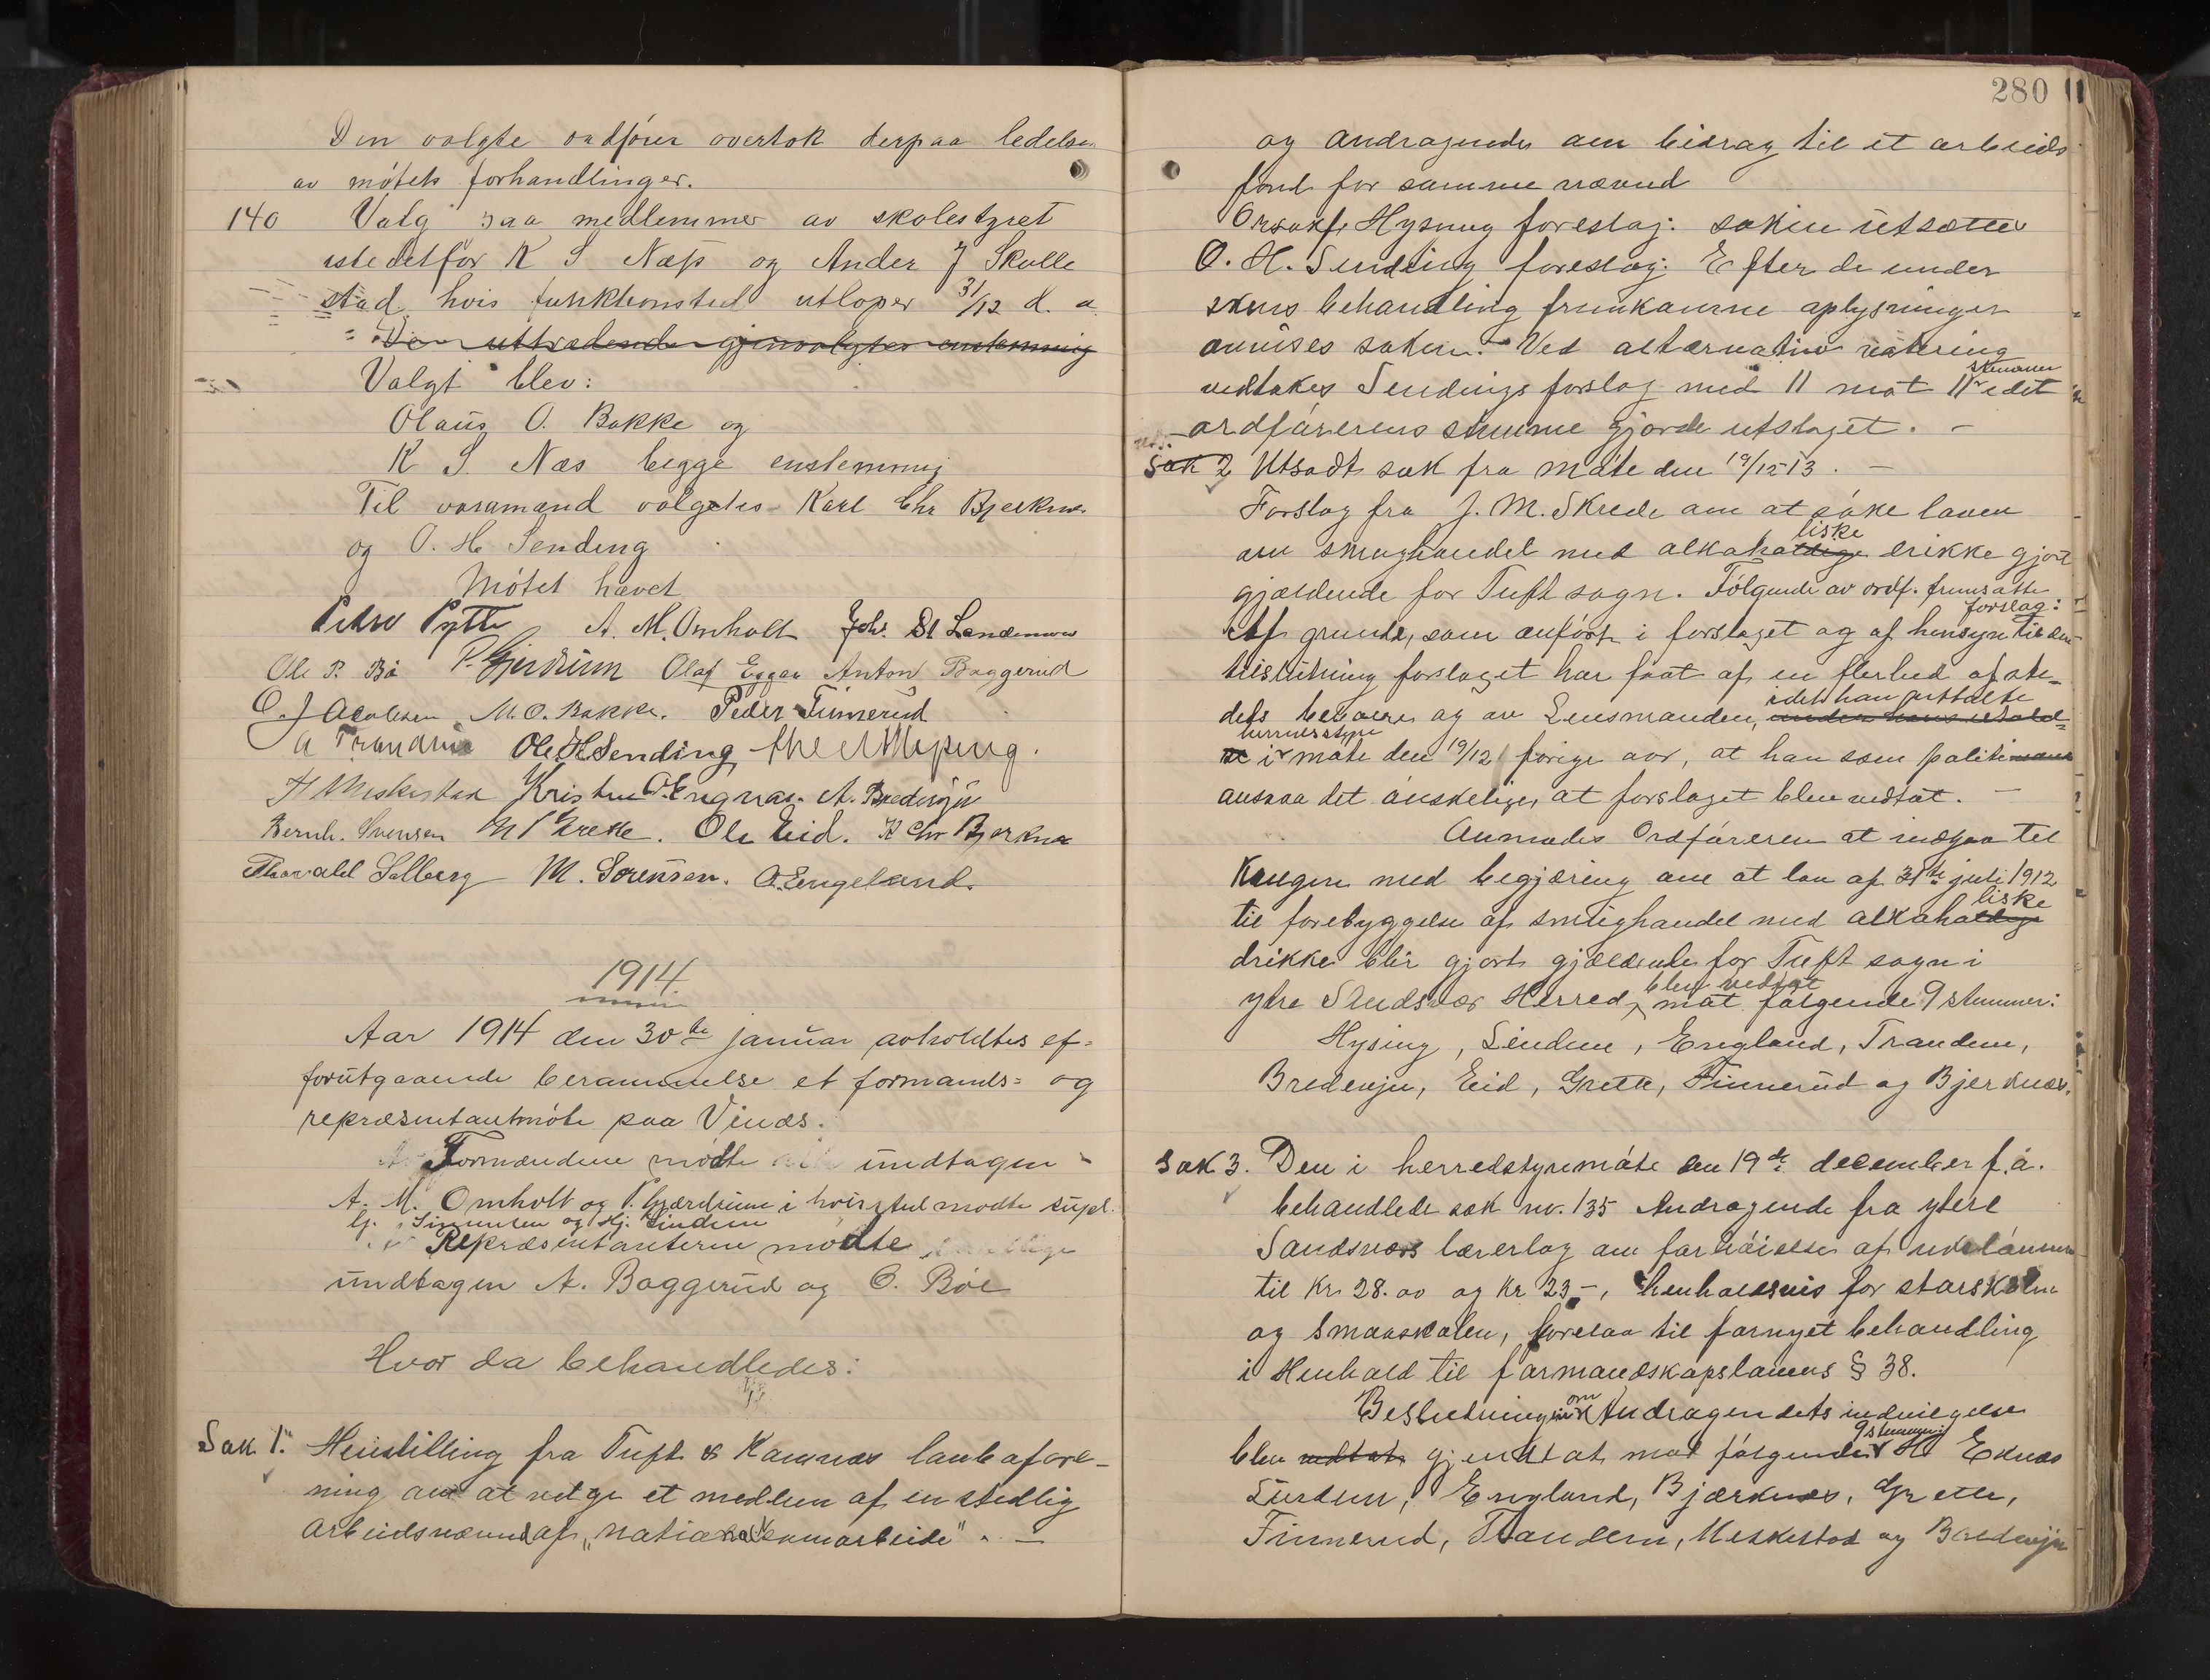 Den valgte ordfører overtok derpaa ledelsen
av møtets forhandlinger.
140 Valg paa medlemmer av skolestyret
istedetfor K S Næss og Ander J Skolle
stad, hvis funktionstid utløper 31/12 d. a.
De uttrædende gjenvalgtes enstemmig
Valgt blev:
Olaus O. Bakke og
K S. Næs begge enstemmig
Til varamænd valgtes Karl Chr Bjerknæs
og O. H. Sending
Møtet hævet
A. M. Omholt Joh.
Ole P. Bö P. Gjerdrum Olaf Eggen Anton Baggerud
O. J Acobsen M. O. Bakke. Peder Finnerud
Ole H Sending
H Meskestad Kristen A. Bredesju
Bernh. Svensen Ole Eid. K Chr Bjerknæs
Thorvald Solberg M. Sørensen. O. Engeland.
1914
Aar 1914 den 30te januar avholdtes ef-
forutgaaende berammelse et formands= og
repræsentantmøte paa Vinæs.
Formændene mødte undtagen
A. M. Omholt og P. Gjærdrum i hvis sted mødte supl.
og Hj. Lindem
Repræsentanterne mødte
undtagen A. Baggerud og O. Böe
Hvor da behandledes:
Sak 1. Henstilling fra Tuft & Komnæs landbofore-
ning om at velge et medlem af en stedlig
arbeidsnævnd af "nationalt samarbeide". —
280
og andragende om bidrag til et arbeids
fond for samme nævnd
Hysing foreslog: saken utsættes
O. H. Sending foreslog: Efter de under
sakens behandling fremkomne oplysninger
avvises saken. Ved alternativ votering
vedtokes Sendings forslag med 11 mot 11 stemmer idet
ordførerens stemme gjorde utslaget. —
Sak 2 Utsadt sak fra møte den 19/12-13. —
Forslag fra J. M. Skrede om at søke loven
om smughandel med alkoholdige liske drikke gjort
gjældende for Tuft sogn. Følgende av ordf. fremsatte
forslag:
Af grunde, som anført i forslaget og af hensyn til den
tilslutning forslaget har faat af en flerhed af ste-
dets beboere og av Lensmanden, idet han uttalte
i herredsstyremøte den 19/12 forrige aar, at han som politimand
ansaa det ønskelig, at forslaget blev vedtat. —
Anmodes Ordføreren at indgaa til
Kongen med begjæring om at lov af 31te juli 1912
til forebyggelse af smughandel med alkoholdige liske
drikke blir gjort gjældende for Tuft sogn i
ytre Sandsvær Herred, blev vedtat mot følgende 9 stemmer:
Hysing, Lindem, Engeland, Trandem,
Bredesju, Eid, Grette, Finnerud og Bjerknæs.
Sak 3. Den i herredstyremøte den 19de december f. å.
behandlede sak nr. 135 Andragende fra ytre
Sandsværs lærerlag om forhøielse af ukelønnen
til Kr. 28.00 og Kr 23-, henholdsvis for storskolen
og smaaskolen, forelaa til fornyet behandling
i Henhold til formandskapslovens § 38.
Beslutningen om Andragendets indvilgelse
blev vedtat gjentat mot følgende 9 stemmer: H. Eknæs
Lindem, Engeland, Bjærknæs, Grette,
Finnerud, Trandem, Meskestad og Bredesju